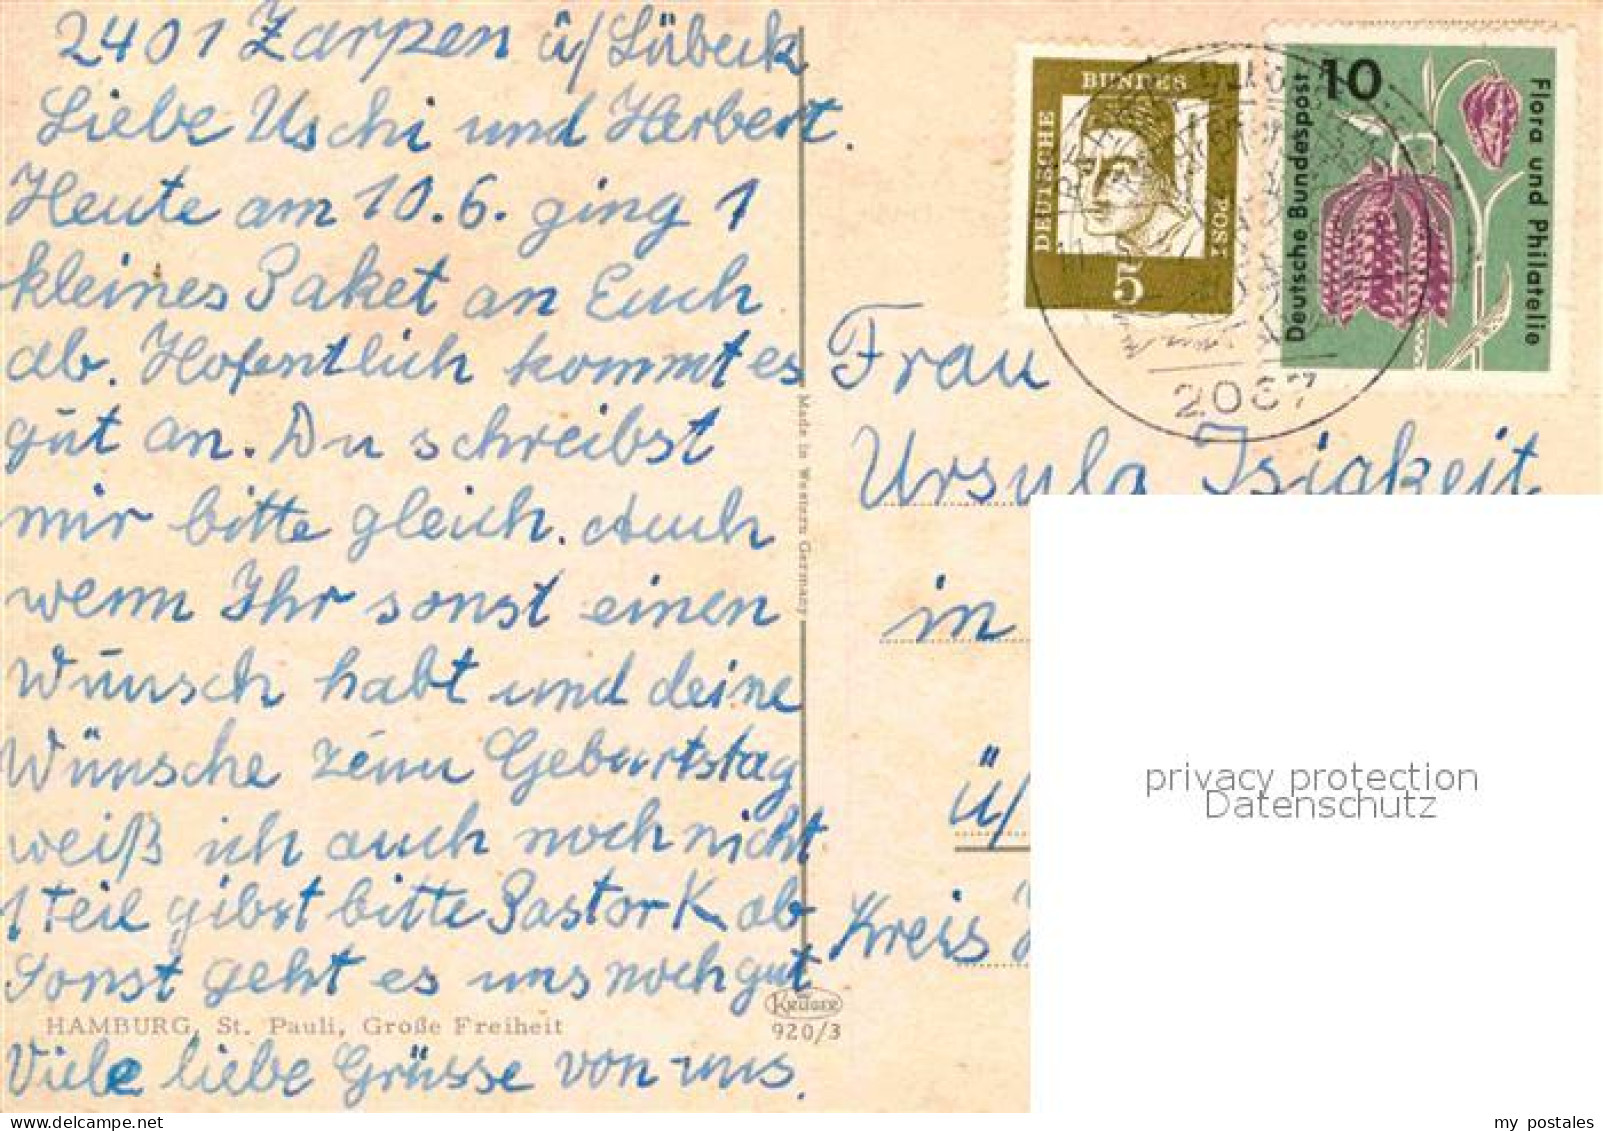 2401 Zarpen ü/Lübeck
Liebe Uschi und Herbert.
Heute am 10.6. ging 1
kleines Paket an Euch
ab. Hofentlich kommt es
gūt an. Du schreibst
mir bitte gleich. Auch
wenn Ihr sonst einen
Wūnsch habt und deine
Wünsche zum Geburtstag
weiß ich auch noch nicht
1 Teil gibst bitte Pastor K ab
Sonst geht es uns noch gut
HAMBURG, St. Pauli, Große Freiheit
Viele liebe Grüsse von uns.
Made in Western Germany
KRÜGER
920/3
DEUTSCHE BUNDES POST
5
10
Deutsche Bundespost
Flora und Philatelie
2067
Frau
Ursula Isigkeit
in
ü/
Kreis
privacy protection
Datenschutz
my postales